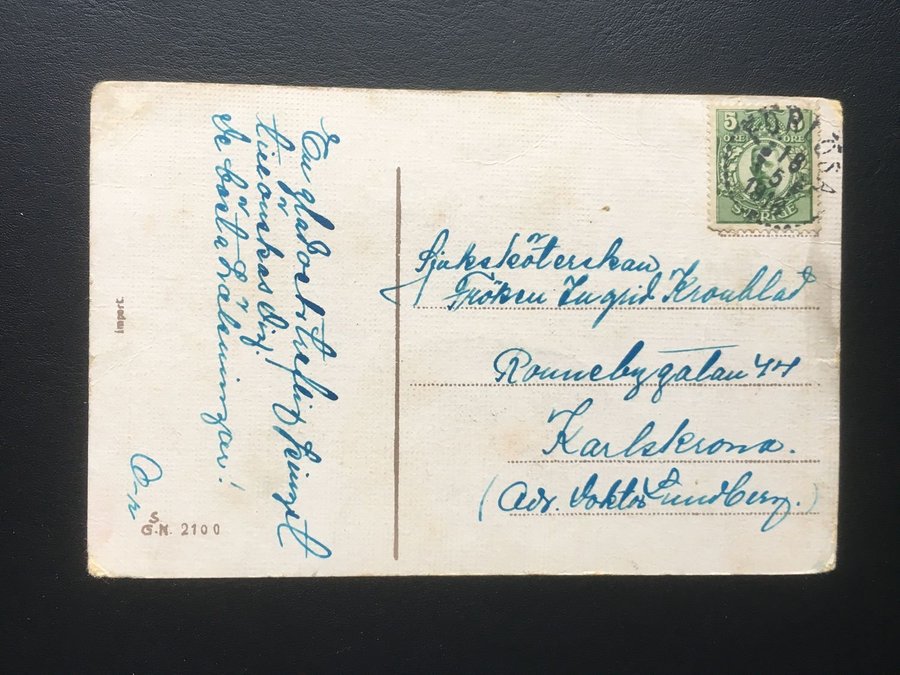 En glad och treflig pingst
tillönskas Dig!
De bästa hälsningar!
O-r
import.
S.
G.N. 2100
5 5
ÖRE ÖRE
SVERIGE
18
5
Sjuksköterskan
Fröken Ingrid Kronblad
Ronnebygatan 44
Karlskrona.
(Adr. Doktor Lundberg.)